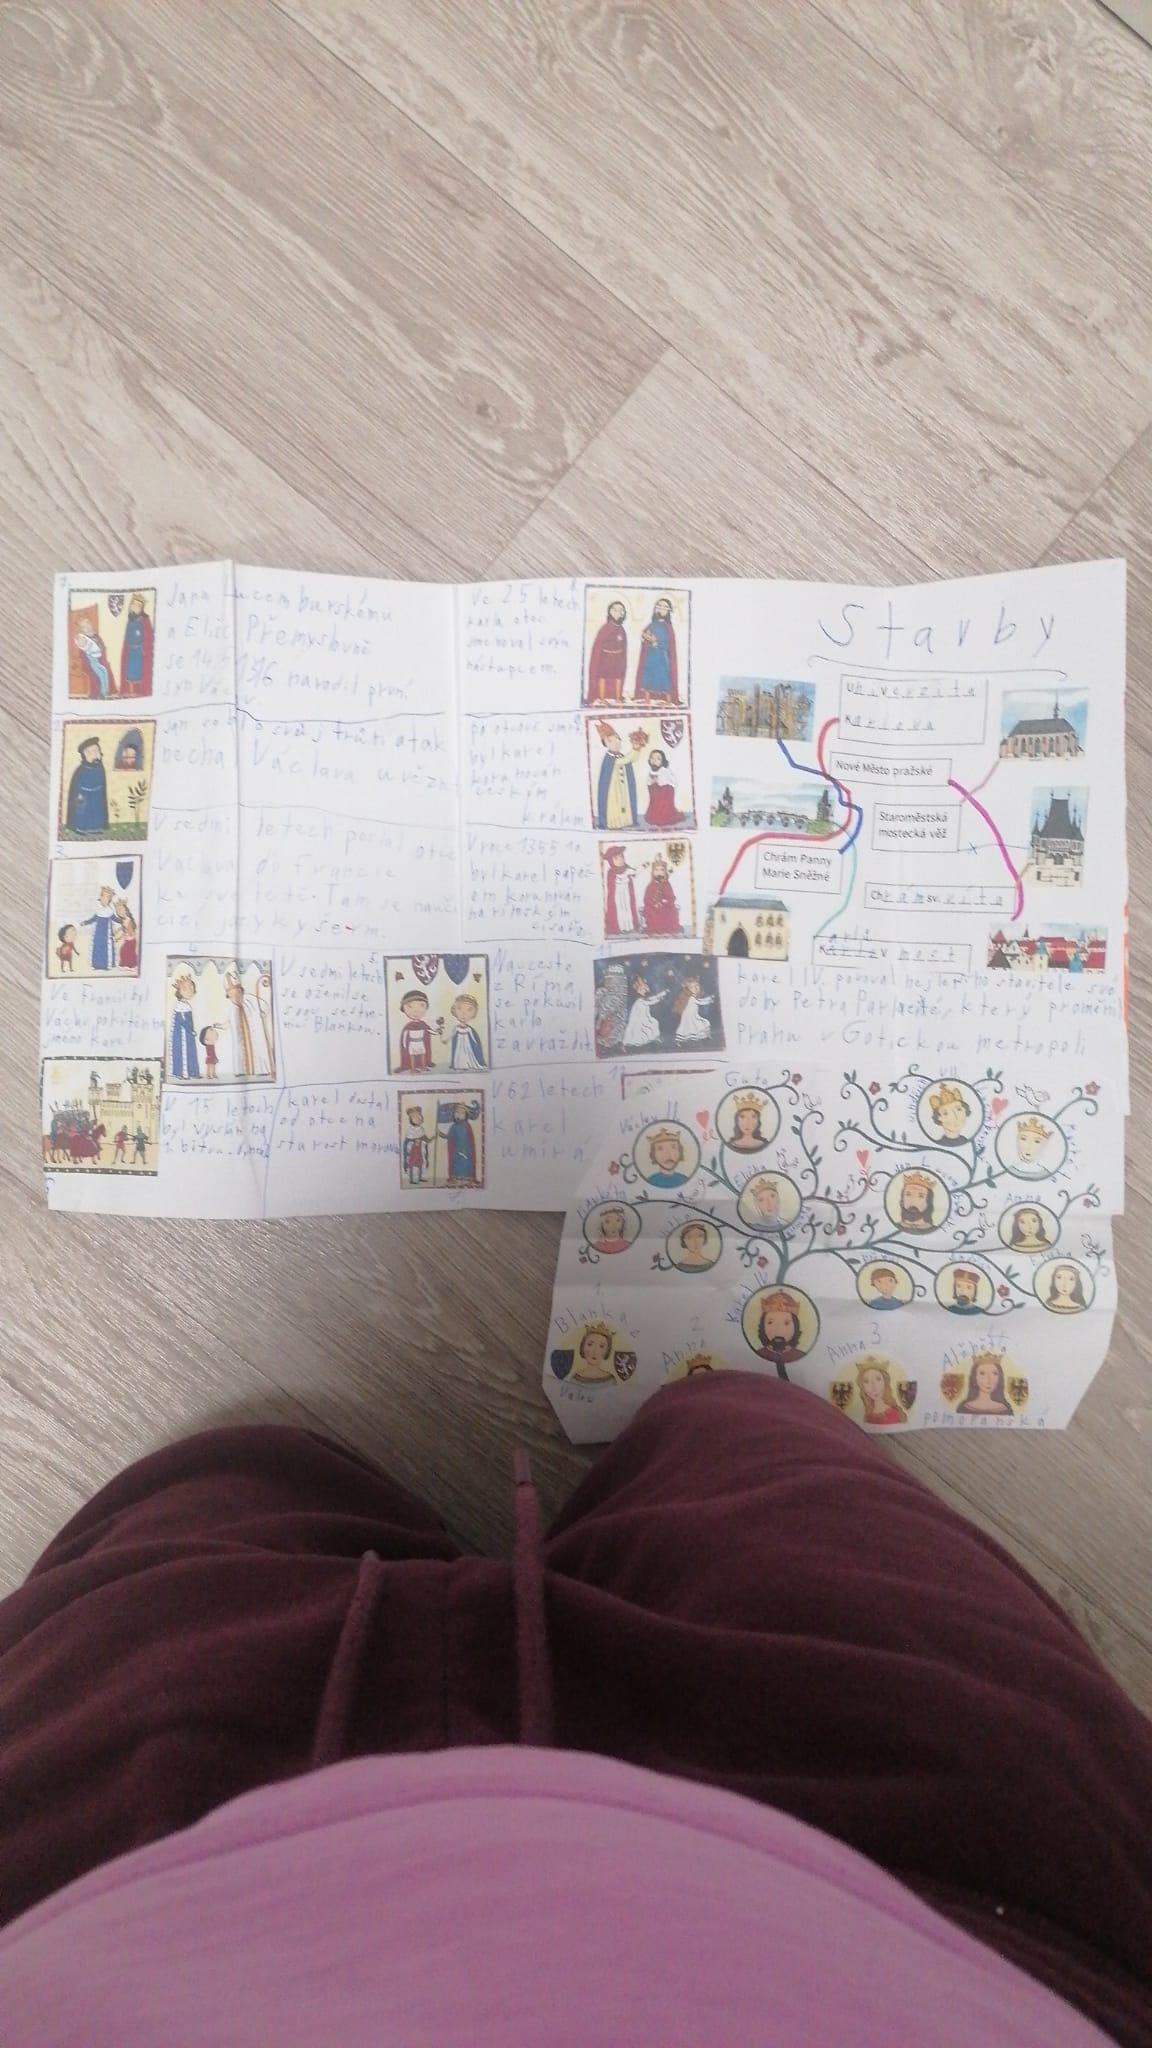 1.
Jana Lucemburskému
a Elišc Přemyslovně
se 14.5 1316 narodil první
syn Václav
2.
Jan
o svůj trůn a tak
nechal Václava
3.
V sedmi letech poslal otec
Václava do Francie
ke své tetě. Tam se naučil
cizí jazyky šerm.
4.
Ve Francii byl
Václav
jméno Karel
5.
V sedmi letech
se oženil se
svou
Blankou.
6
V 15 letech
byl
1. bitvu
7.
karel dostal
od otce na
starost moravu
8
Ve 25 letech
karla otec
jmenoval svým
nástupcem.
9
po otcově smrti
byl karel
korunován
českým
králem
V roce 1355
byl karel papež
em korunován
na římským
císařem
11
Na cestě
z Říma
se pokusil
karlo
zavraždit
12
V 62 letech
karel
umírá
Stavby
Univerzita
Karlova
Nové Město pražské
Staroměstská
mostecká věž
Chrám Panny
Marie Sněžné
Chrám sv. Víta
Karlův most
karel IV. povolal nejlepšího stavitele své
doby Petra Parléře, který proměnil
Prahu v Gotickou metropoli
Guta
VII
Václav II
Eliška
Anna
Eliška
Karel IV
1
Blanka
z
Valois
2
Anna
Anna 3
4
Alžběta
pomořanská